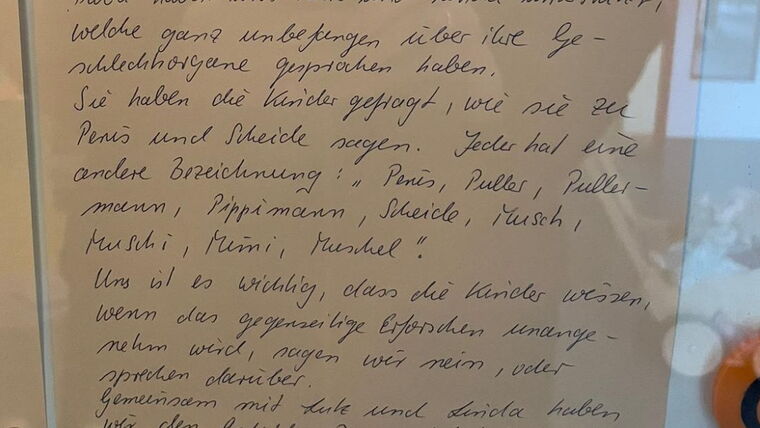 welche ganz unbefangen über ihre Ge-
schlechtorgane gesprochen haben.
Sie haben die Kinder gefragt, wie sie zu
Penis und Scheide sagen. Jeder hat eine
andere Bezeichnung: „Penis, Puller, Puller-
mann, Pippimann, Scheide, Musch,
Muschi, Mimi, Muschel".
Uns ist es wichtig, dass die Kinder wissen,
wenn das gegenseitige Erforschen unange-
nehm wird, sagen wir nein, oder
sprechen darüber.
Gemeinsam mit Lutz und Linda haben
wir den